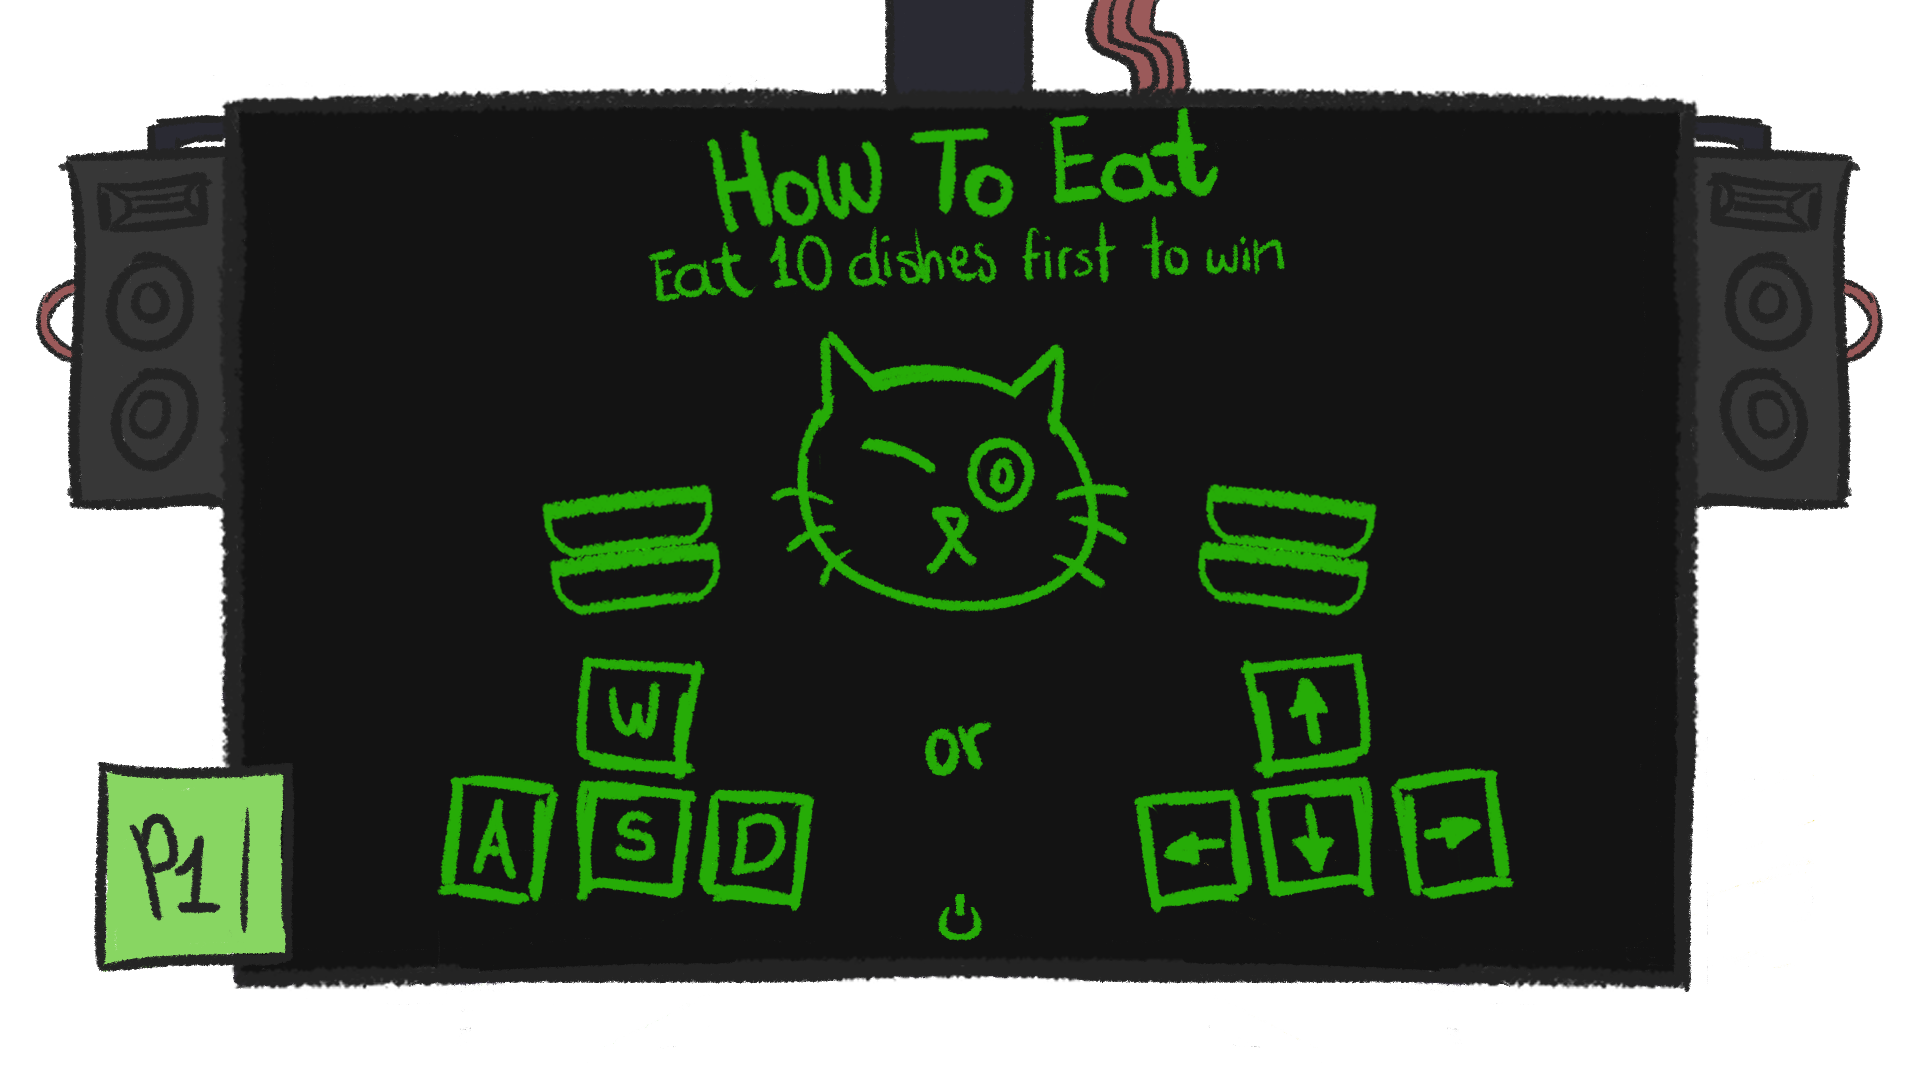 How To Eat
Eat 10 dishes first to win
W
or
A S D
P1